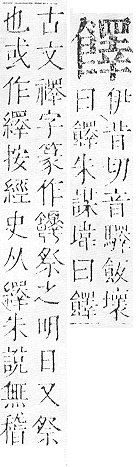 饆
伊昔切音驛飯壞
曰饆朱謀㙔曰饆
古文襗字篆作饆祭之明日又祭
也或作繹按經史从繹朱說無稽